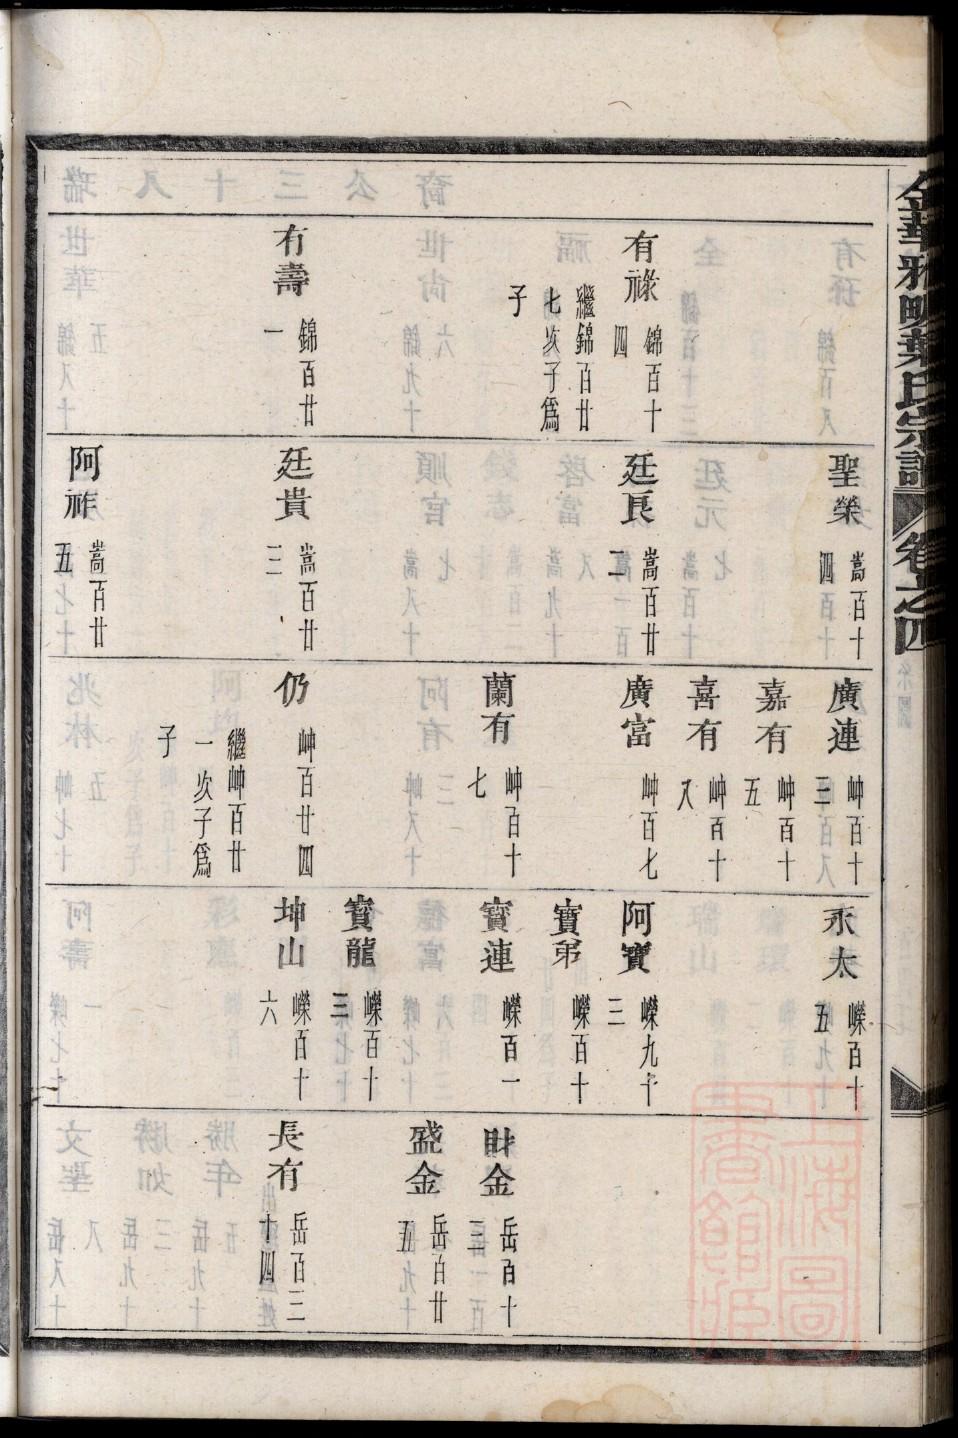 金華雅畈葉氏宗譜
卷之四
有祿
錦百十
四
繼錦百廿
七次子爲
子
有壽
錦百廿
一
聖榮
嵩百十
四
廷長
嵩百廿
二
廷貴
嵩百廿
三
阿祚
嵩百廿
五
廣連
岫百十
三
嘉有
岫百十
五
喜有
岫百十
又
廣富
岫百七
蘭有
岫百十
七
仍
岫百廿四
繼岫百廿
一次子爲
子
永太
嶸百十
五
阿寶
嶸九十
三
寶弟
嶸百十
寶連
嶸百一
寶龍
嶸百十
三
坤山
嶸百十
六
財金
岳百十
三
盛金
岳百廿
五
長有
岳百三
十四
上海圖
書館藏